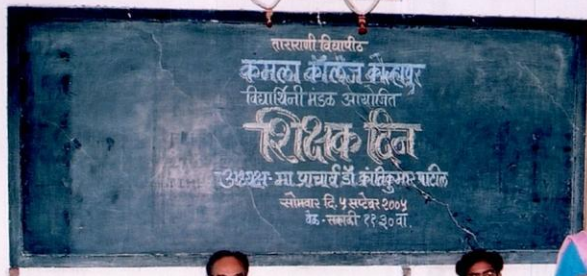 ताराराणी विद्यापीठ
कमला कॉलेज कोल्हापूर
विद्यार्थिनी मंडळ आयोजित
शिक्षक दिन
अध्यक्ष - मा. प्राचार्य डॉ. क्रांतिकुमार पाटील
सोमवार दि. ५ सप्टेंबर २००५
वेळ - सकाळी ११.३० वा.